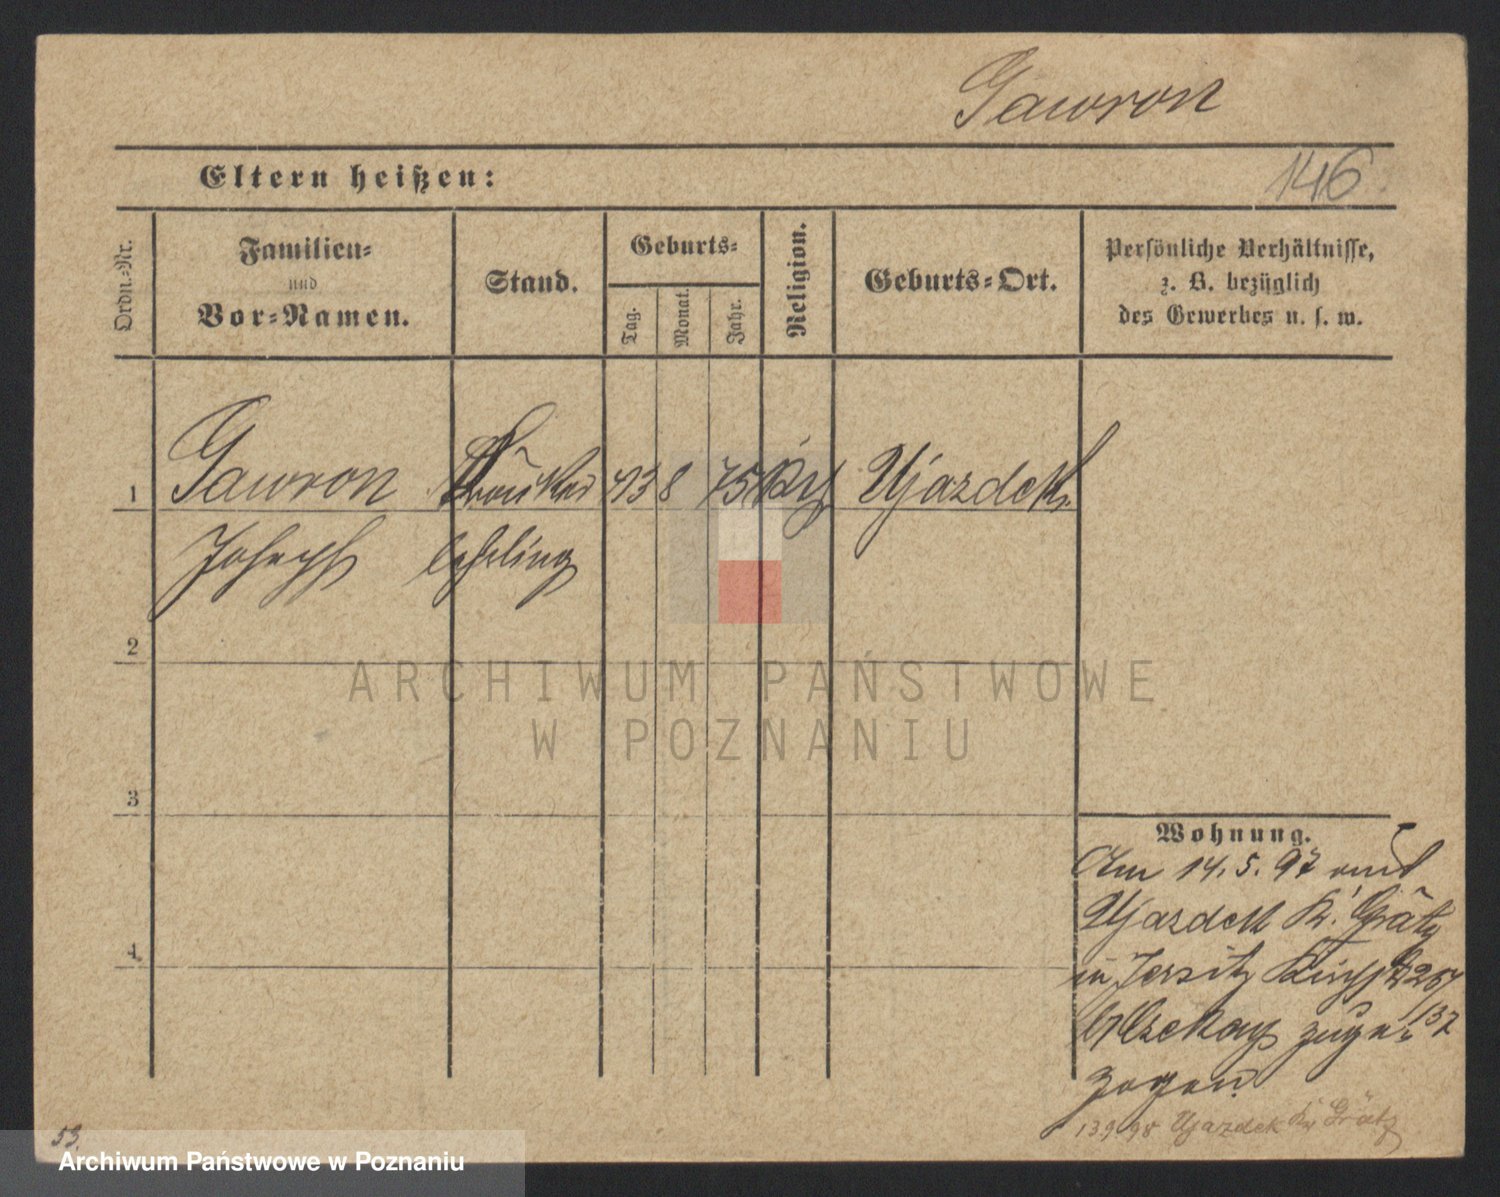 Gawron
Eltern heißen:
146
Ordn.-Nr.
Familien-
und
Vor-Namen.
Stand.
Geburts-
Tag.
Monat.
Jahr.
Religion.
Geburts-Ort.
Persönliche Verhältnisse,
z. B. bezüglich
des Gewerbes u. s. w.
1
Gawron
13
8
75
Ujazdek
Joseph
lehrling
2
ARCHIWUM PAŃSTWOWE
W POZNANIU
3
Wohnung.
4
Am 14. 5. 97 aus
Ujazdek Kr. Grätz
in Jersitz
b/ zuge-
zogen.
13 9 98 Ujazdek Kr Grätz
53.
Archiwum Państwowe w Poznaniu